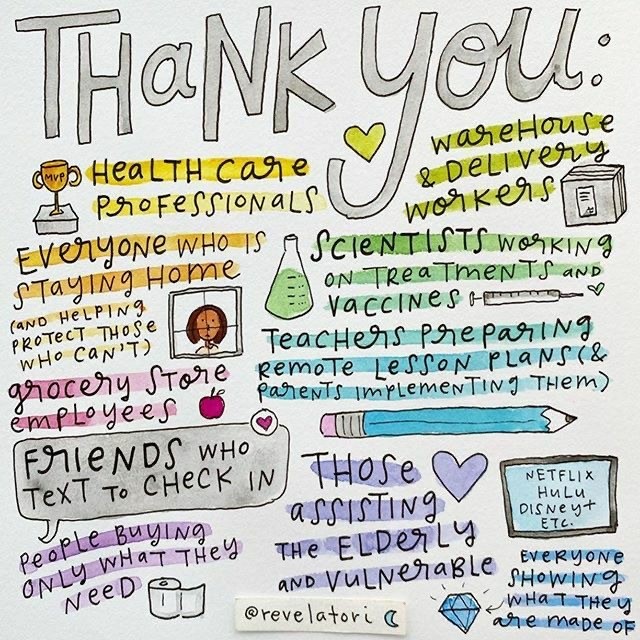 THANK YOU:
MVP
HEALTH CARE
PROFESSIONALS
WAREHOUSE
& DELIVERY
WORKERS
EVERYONE WHO IS
STAYING HOME
(AND HELPING
PROTECT THOSE
WHO CAN'T)
SCIENTISTS WORKING
ON TREATMENTS AND
VACCINES
TEACHERS PREPARING
REMOTE LESSON PLANS (&
PARENTS IMPLEMENTING THEM)
GROCERY STORE
EMPLOYEES
FRIENDS WHO
TEXT TO CHECK IN
THOSE
ASSISTING
THE ELDERLY
AND VULNERABLE
NETFLIX
HULU
DISNEY+
ETC.
PEOPLE BUYING
ONLY WHAT THEY
NEED
EVERYONE
SHOWING
WHAT THEY
ARE MADE OF
@revelatori